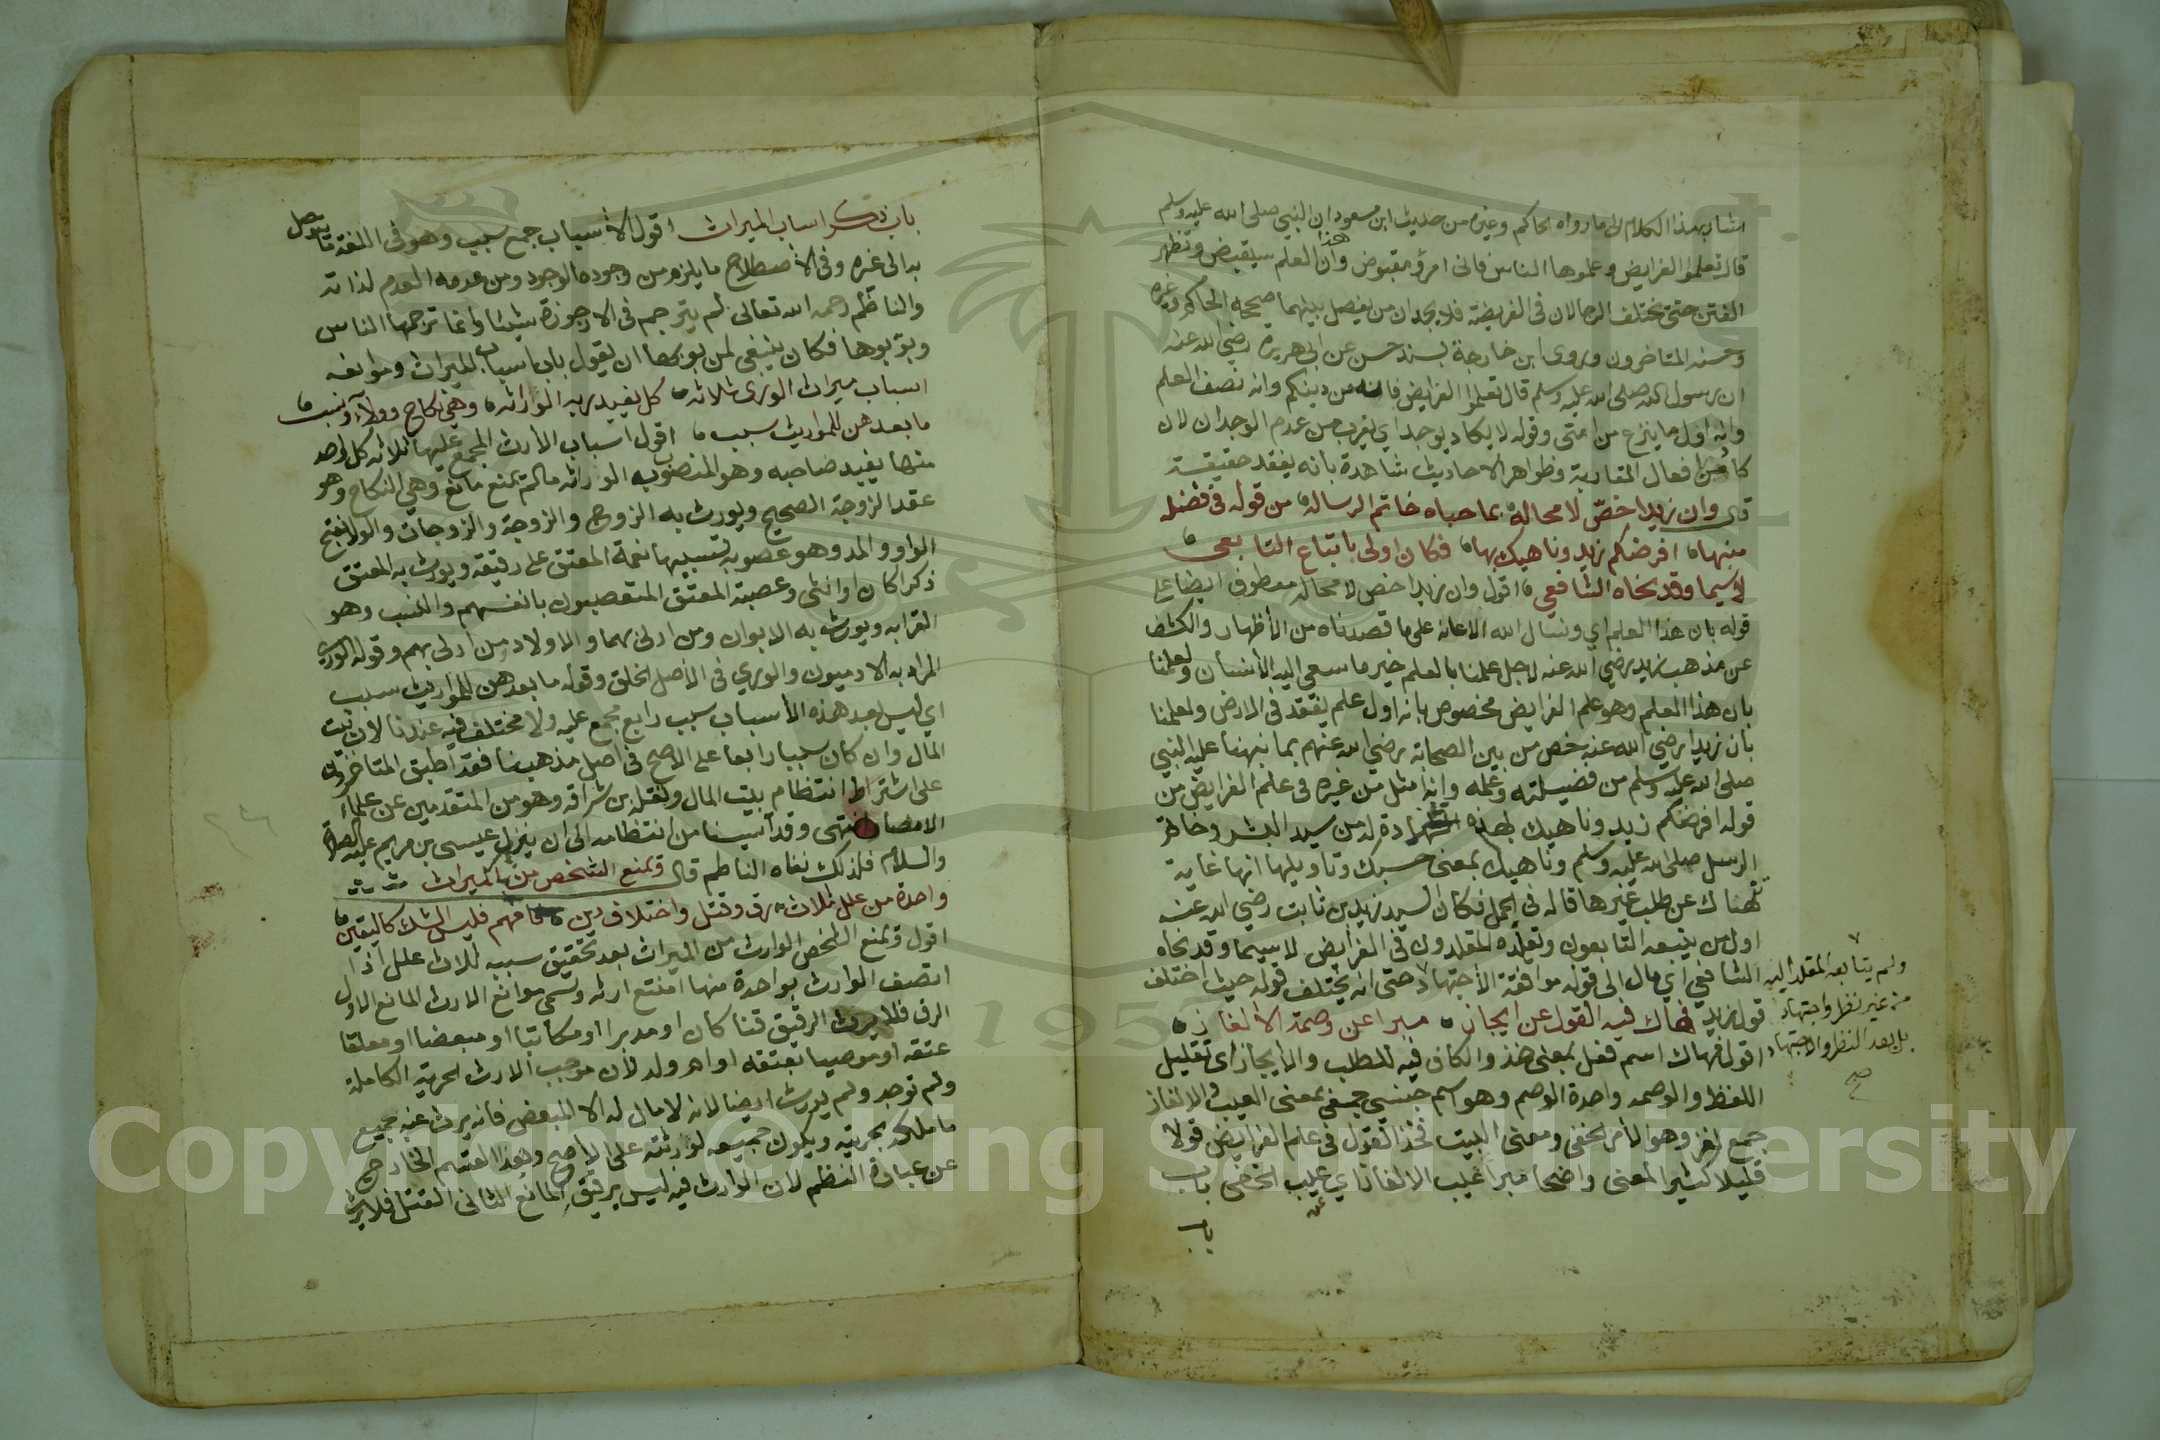 اشار بهذا الكلام الى ما رواه الحاكم وغيره من حديث ابن مسعود ان النبي صلى الله عليه وسلم
قال تعلموا الفرايض وعلموها الناس فاني امرؤ مقبوض وان هذا العلم سيقبض وتظهر
الفتن حتى يختلف الرجلان في الفريضة فلا يجدان من يفصل بينهما صححه الحاكم وغيره
وحسنه المتاخرون وروى ابن خارجة بسند حسن عن ابي هريرة رضي الله عنه
ان رسول الله صلى الله عليه وسلم قال تعلموا الفرايض فانه من دينكم وانه نصف العلم
وانه اول ما ينزع من امتي وقوله لا يكاد يوجد اي يقرب من عدم الوجدان لان
كاد من افعال المقاربة وظواهر الاحاديث شاهدة بانه يفقد حقيقة
قال وان زيدا خص لا محالة بما حباه خاتم الرسالة من قوله في فضله
منبها افرضكم زيد وناهيك بها فكان اولى باتباع التابعي
لا سيما وقد نحاه الشافعي اقول وان زيدا خص لا محالة معطوف ايضا على
قوله بان هذا العلم اي ونسال الله الاعانة على ما قصدناه من الأظهار والكشف
عن مذهب زيد رضي الله عنه لاجل علمنا بالعلم خير ما سعي اليه الأنسان ولعلمنا
بان هذا العلم وهو علم الفرايض مخصوص بانه اول علم يفقد في الارض ولعلمنا
بان زيدا رضي الله عنه خص من بين الصحابة رضي الله عنهم بما نبهنا عليه النبي
صلى الله عليه وسلم من فضيلته وعلمه وانه امثل من غيره في علم الفرايض من
قوله افرضكم زيد وناهيك بهذه الشهادة له من سيد البشر وخاتم
الرسل صلى الله عليه وسلم وناهيك بمعنى حسبك وتاويلها انها غاية
تنهاك عن طلب غيرها قاله في المجمل فكان السيد زيد بن ثابت رضي الله عنه
اولى من يتبعه التابعون وتقلده المقلدون في الفرايض لا سيما وقد نحاه
الشافعي اي مال الى قوله موافقة الأجتهاد حتى انه يختلف قوله حيث اختلف
قول زيد فهاك فيه القول عن ايجاز مبرا عن وصمة الألغاز
اقول فهاك اسم فعل بمعنى خذ والكاف فيه للطلب والايجاز اي تقليل
اللفظ والوصمه واحدة الوصم وهو اسم جنس جمعي بمعنى العيب والالغاز
جمع لغز وهو الأمر الخفي ومعنى البيت فخذ القول في علم الفرايض قولا
قليلا كثير المعنى واضحا مبرا عن عيب الالغاز اي عيب الخفي باب
باب
ولم يتابعه المقلد اليه
من غير نظر واجتهاد
بل بعد النظر والاجتهاد
صح
باب ذكر اسباب الميراث اقول الأسباب جمع سبب وهو في اللغة ما يتوصل
به الى غيره وفي الأصطلاح ما يلزم من وجوده الوجود ومن عدمه العدم لذاته
والناظم رحمه الله تعالى لم يترجم في الارجوزة شيئا وانما ترجمها الناس
وبوبوها فكان ينبغي لمن بوبها ان يقول باب اسباب الميراث وموانعه
اسباب ميراث الورى ثلاثة كل يفيد ربه الوراثة وهي نكاح وولاء ونسب
ما بعدهن للمواريث سبب اقول اسباب الارث المجمع عليها ثلاثة كل واحد
منها يفيد صاحبه وهو المتصف به الوراثه ما لم يمنع مانع وهي النكاح وهو
عقد الزوجة الصحيح ويورث به الزوج والزوجة والزوجات والولا بفتح
الواو والمد وهو عصوبة سببها نعمة المعتق على رقيقه ويورث به المعتق
ذكرا كان او انثى وعصبة المعتق المتعصبون بانفسهم والنسب وهو
القرابه ويورث به الابوان ومن ادلى بهما والاولاد ومن ادلى بهم وقوله الورى
المراد به الادميون والورى في الأصل الخلق وقوله ما بعدهن للمواريث سبب
اي ليس بعد هذه الأسباب سبب رابع مجمع عليه ولا مختلف فيه عندنا لان بيت
المال وان كان سببا رابعا على الاصح في اصل مذهبنا فقد اطبق المتاخرون
على اشتراط انتظام بيت المال ونقله بن سراقه وهو من المتقدمين عن علماء
الامصار انتهى وقد آيسنا من انتظامه الى ان ينزل عيسى بن مريم عليه الصلاة
والسلام فلذلك نفاه الناظم قال ويمنع الشخص من الميراث
واحدة من علل ثلاث رق وقتل واختلاف دين فافهم فليس الشك كاليقين
اقول ويمنع الشخص الوارث من الميراث بعد تحقيق سببه ثلاث علل اذا
اتصف الوارث بواحدة منها امتنع ارثه وتسمى موانع الارث المانع الاول
الرق فلا يرث الرقيق قنا كان او مدبرا او مكاتبا او مبعضا او معلقا
عتقه او موصيا بعتقه او ام ولد لأن موجب الارث الحرية الكاملة
ولم توجد ولم يورث ايضا لانه لا مال له الا المبعض فانه يرث عنه جميع
ما ملكه بحريته ويكون جميعه لورثته على الاصح وهذا القسم الخارج
عن عبارة النظم لان الوارث فيه ليس برقيق المانع الثاني القتل فلا يرث
Copyright © King Saud University
1957